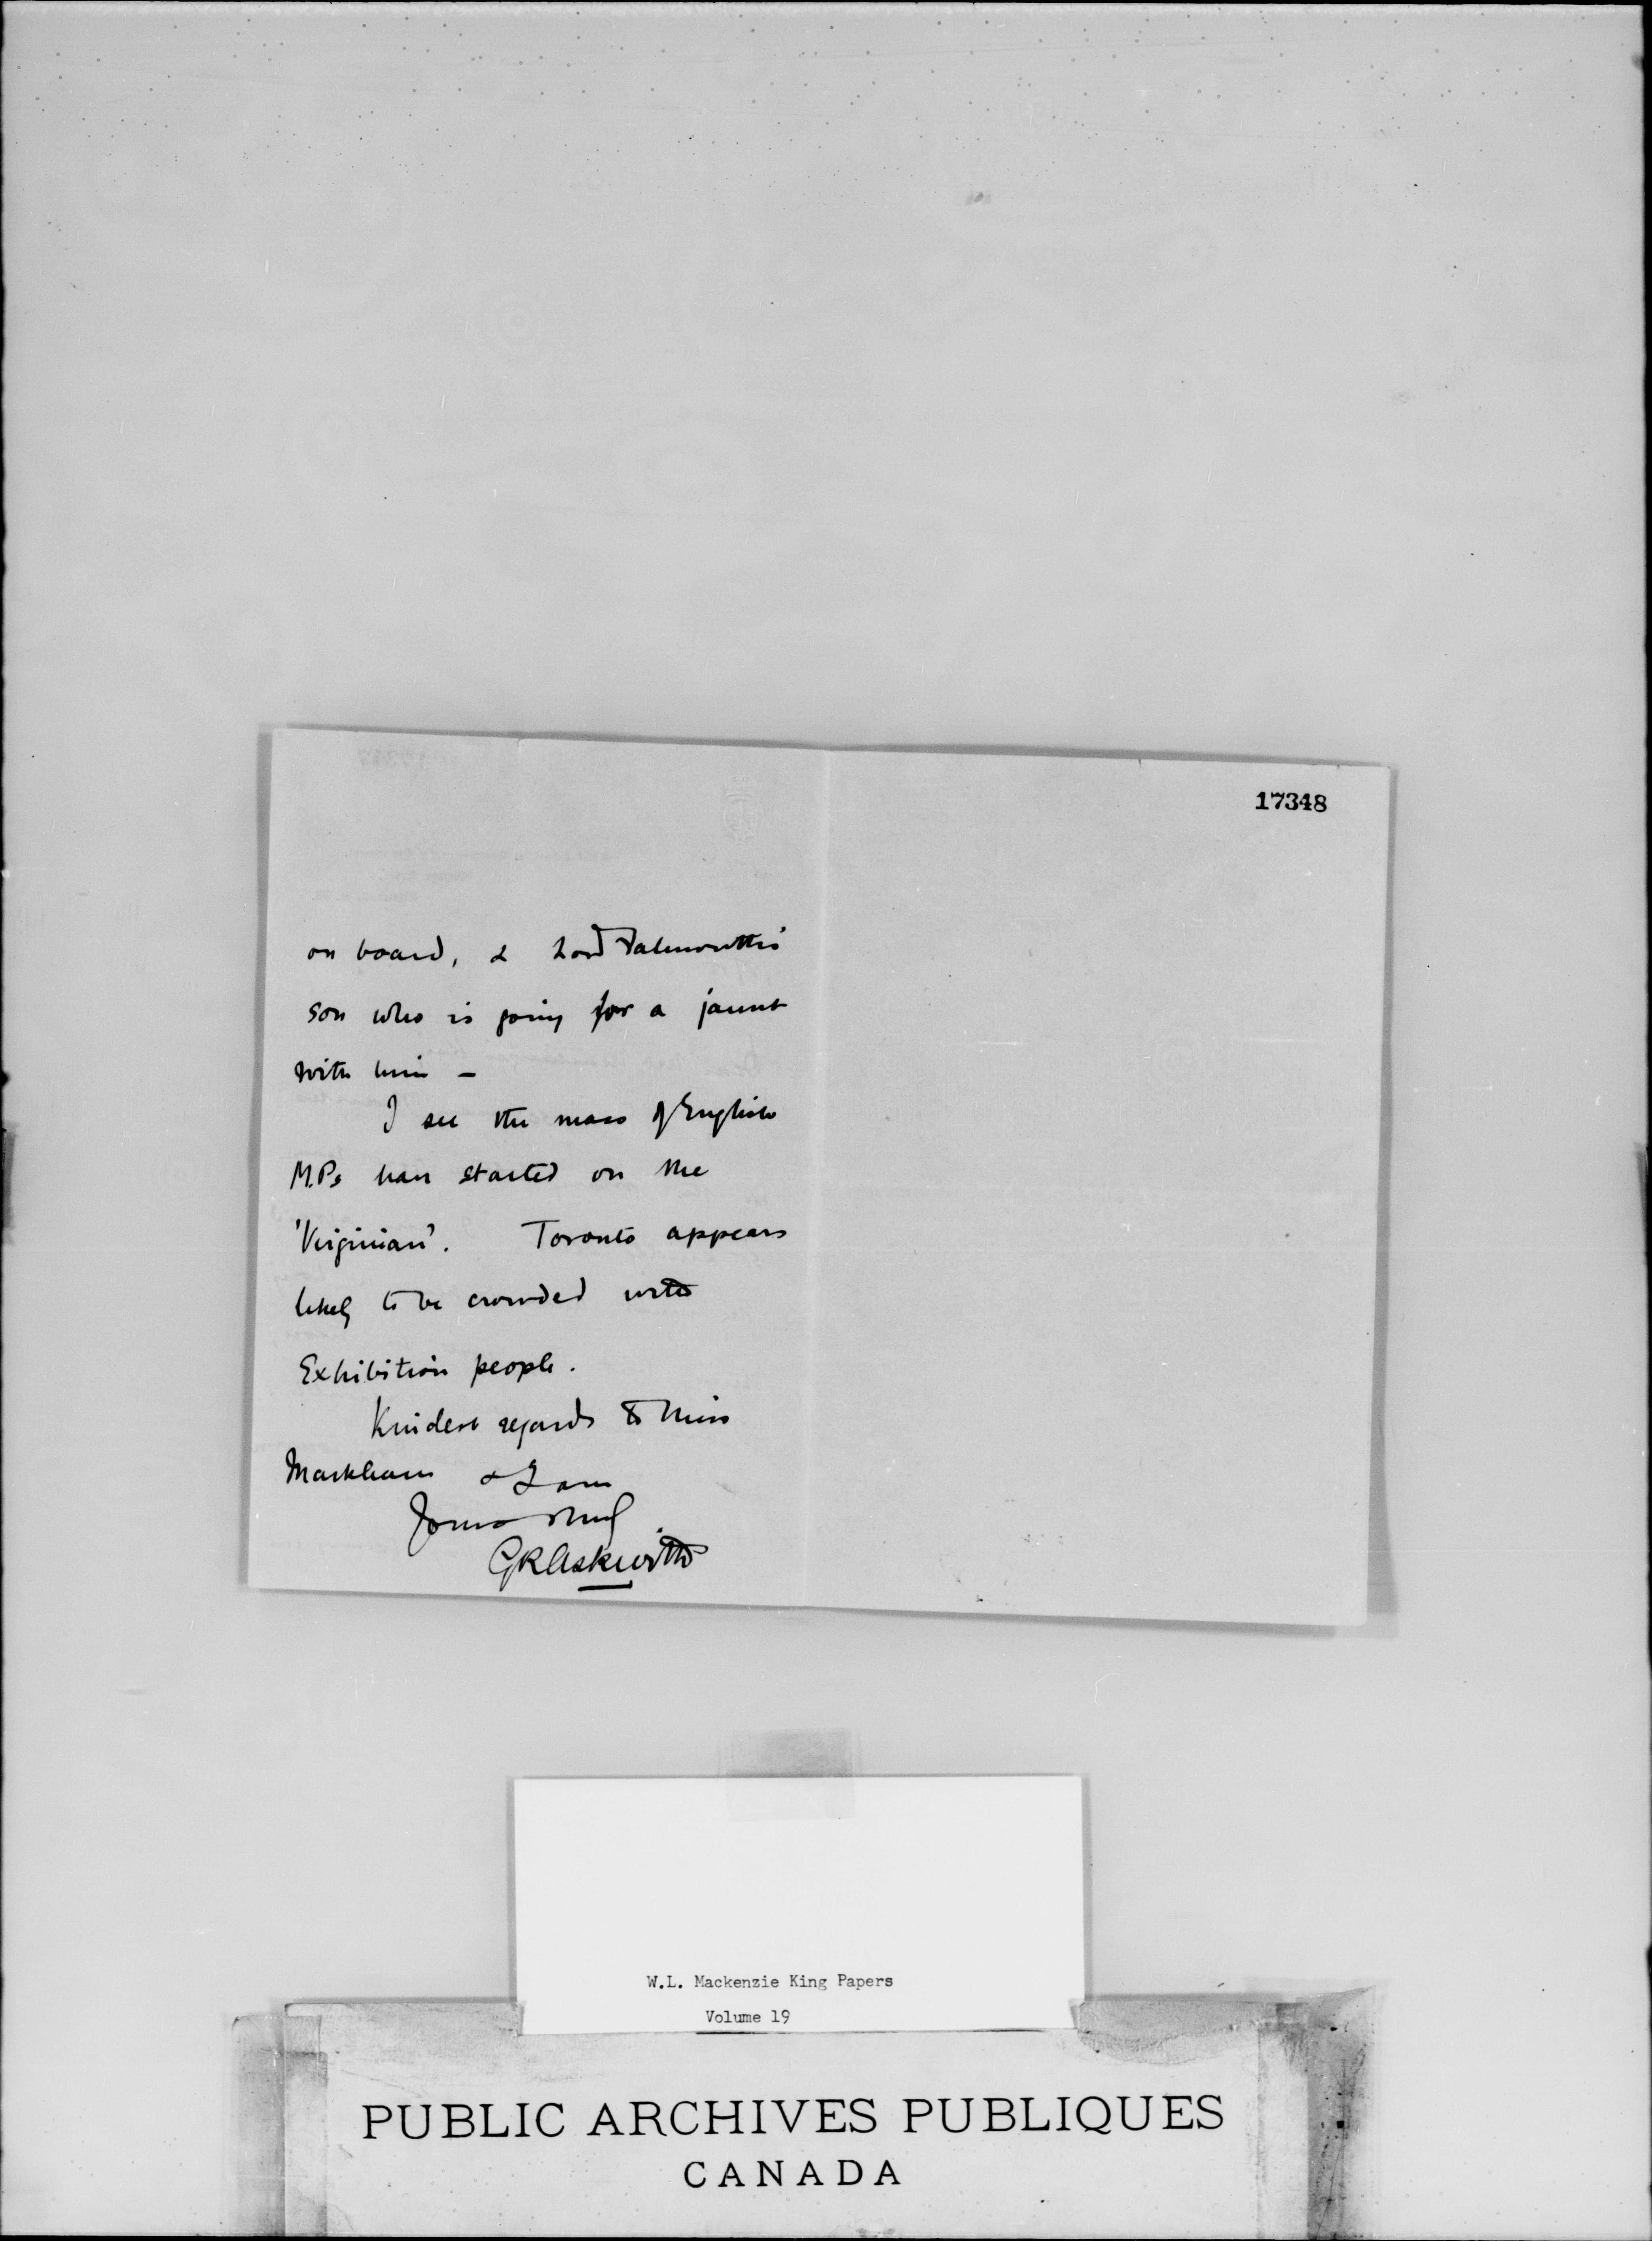 17348
on board, & Lord Falmouth's
son who is going for a jaunt
with him –
I see the mass of English
M.Ps have started on the
'Virginian'. Toronto appears
likely to be crowded with
Exhibition people.
Kindest regards to Miss
Markham & I am
Yours truly
GRAskwith
W.L. Mackenzie King Papers
Volume 19
PUBLIC ARCHIVES PUBLIQUES
CANADA